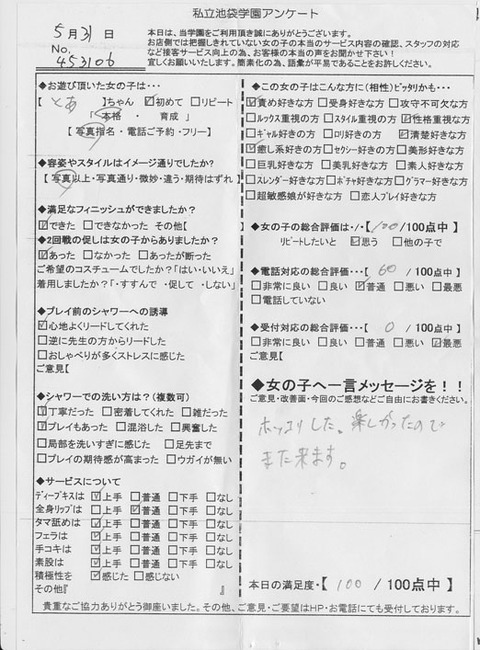 私立池袋学園アンケート
5月31日
No.
453106
本日は、当学園をご利用頂き誠にありがとうございます。
お店側では把握しきれていない女の子の本当のサービス内容の確認、スタッフの対応
など接客サービス向上の為、お客様の本当の声をお聞かせ下さい!
宜しくお願いいたします。簡素化の為、語彙が平易であることをお許しください。
◆お遊び頂いた女の子は・・・
【 とあ 】ちゃん ☑初めて □リピート
「本格 ・ 育成 」
【写真指名・電話ご予約・フリー】
◆容姿やスタイルはイメージ通りでしたか?
【写真以上・写真通り・微妙・違う・期待はずれ】
◆満足なフィニッシュができましたか?
☑できた □できなかった その他【
◆2回戦の促しは女の子からありましたか?
☑あった □なかった □あったが断った
ご希望のコスチュームでしたか?「はい・いいえ」
着用しましたか?「・すすんで ・促して ・しない」
◆プレイ前のシャワーへの誘導
☑心地よくリードしてくれた
□逆に先生の方からリードした
□おしゃべりが多くストレスに感じた
ご意見【
◆シャワーでの洗い方は?(複数可)
☑丁寧だった □密着してくれた □雑だった
☑プレイもあった □混浴した □興奮した
□局部を洗いすぎに感じた □足先まで
□プレイの期待感が高まった □ウガイが無い
◆サービスについて
ディープキスは ☑上手 □普通 □下手 □なし
全身リップは □上手 ☑普通 □下手 □なし
タマ舐めは ☑上手 □普通 □下手 □なし
フェラは ☑上手 □普通 □下手 □なし
手コキは ☑上手 □普通 □下手 □なし
素股は ☑上手 □普通 □下手 □なし
積極性を ☑感じた □感じない
その他『 』
◆この女の子はこんな方に(相性)ピッタリかも・・・
☑責め好きな方 □受身好きな方 □攻守不可欠な方
□ルックス重視の方 □スタイル重視の方 ☑性格重視な方
□ギャル好きの方 □ロリ好きの方 ☑清楚好きな方
☑癒し系好きの方 □セクシー好きの方 □美形好きな方
□巨乳好きな方 □美乳好きな方 □素人好きな方
□スレンダー好きな方 □ポチャ好きな方 □グラマー好きな方
□超敏感娘が好きな方 □恋人プレイ好きな方
◆女の子の総合評価は・・・【 100 /100点中】
リピートしたいと ☑思う □他の子で
◆電話対応の総合評価・・・【 60 /100点中】
□非常に良い □良い ☑普通 □悪い □最悪
□電話していない
◆受付対応の総合評価・・・【 0 /100点中】
□非常に良い □良い □普通 □悪い ☑最悪
ご意見【
◆女の子へ一言メッセージを!!
ご意見・改善面・今回のご感想などご自由にお書きください。
ホッコリした。楽しかったので
また来ます。
本日の満足度・【 100 /100点中】
貴重なご協力ありがとう御座いました。その他、ご意見・ご要望はHP・お電話にても受付しております。